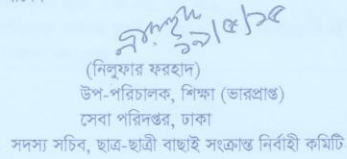 ১৯/৫/১৫
(নিলুফার ফরহাদ)
উপ-পরিচালক, শিক্ষা (ভারপ্রাপ্ত)
সেবা পরিদপ্তর, ঢাকা
সদস্য সচিব, ছাত্র-ছাত্রী বাছাই সংক্রান্ত নির্বাহী কমিটি